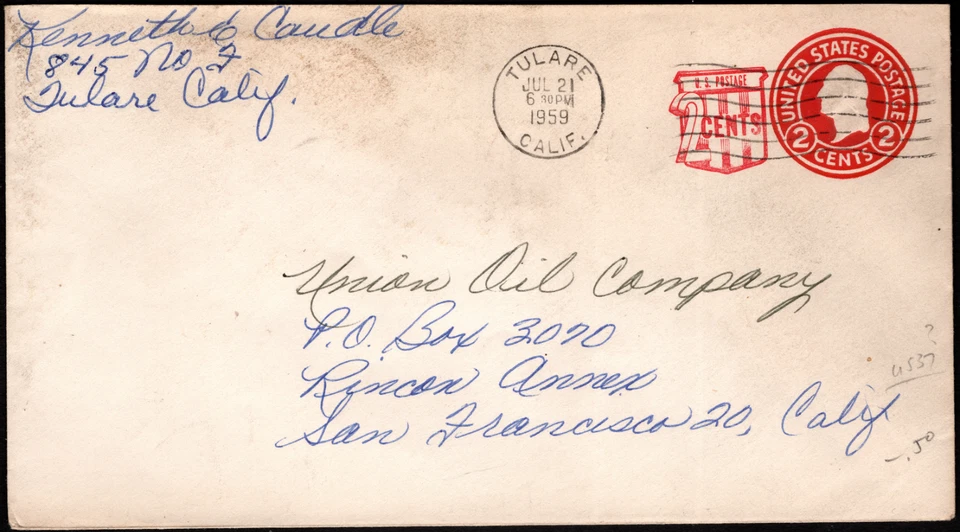 Kenneth E Caudle
845 No F
Tulare Calif.
TULARE
JUL 21
6 30 PM
1959
CALIF.
U.S. POSTAGE
2 CENTS
UNITED STATES POSTAGE
2 CENTS 2
Union Oil Company
P.O. Box 3070
Rincon Annex
San Francisco 20, Calif
?
U537
.50